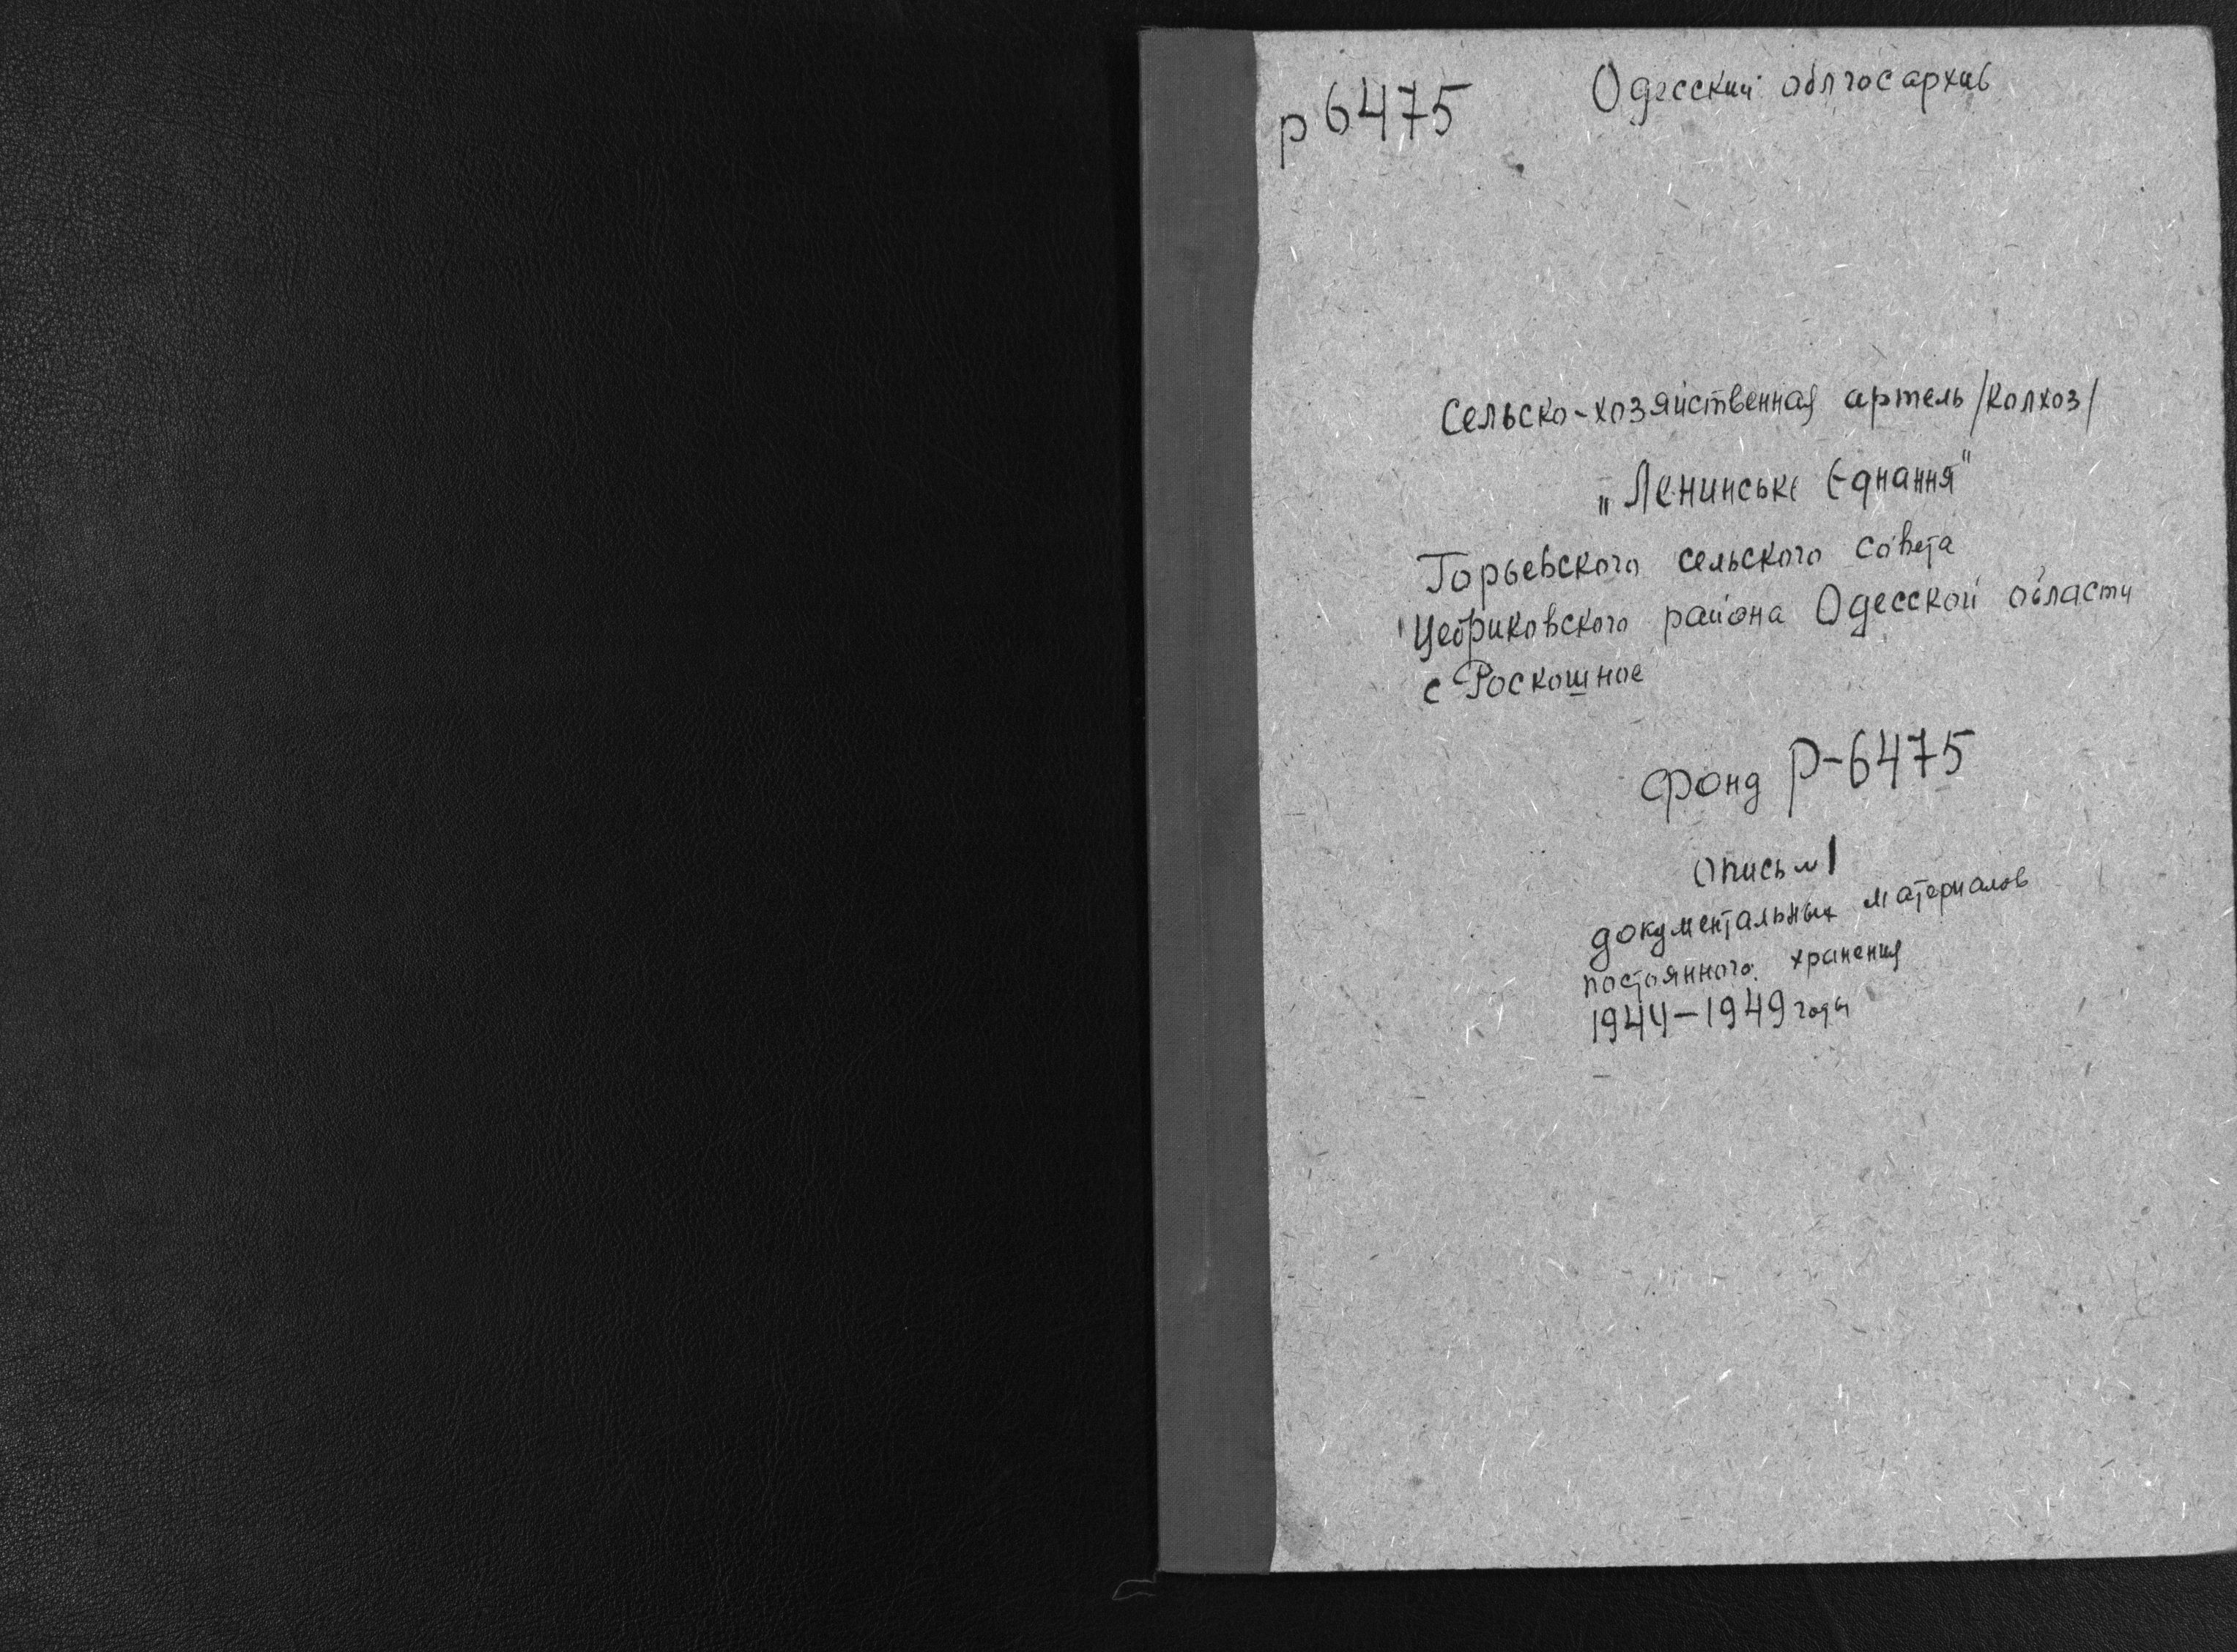 р 6475
Одесский облгосархив
Сельско-хозяйственная артель /колхоз/
„Ленинське Єднання"
Горьевского сельского совета
Цебриковского района Одесской области
с Роскошное
Фонд Р-6475
Опись №1
документальных материалов
постоянного хранения
1944-1949 годы